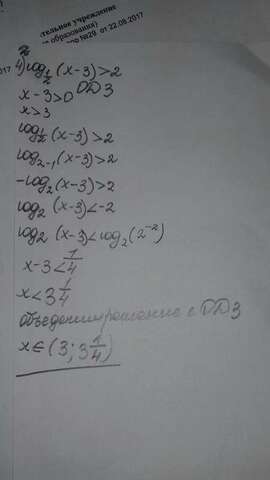 тельное учреждение
образования)
№29 от 22.08.2017
017 4) log_{1/2} (x-3) > 2
x-3>0 ОДЗ
x>3
log_{1/2} (x-3) > 2
log_{2^{-1}} (x-3) > 2
-log_2 (x-3) > 2
log_2 (x-3) < -2
log_2 (x-3) < log_2 (2^{-2})
x-3 < 1/4
x < 3 1/4
объединим решение с ОДЗ
x ∈ (3; 3 1/4)